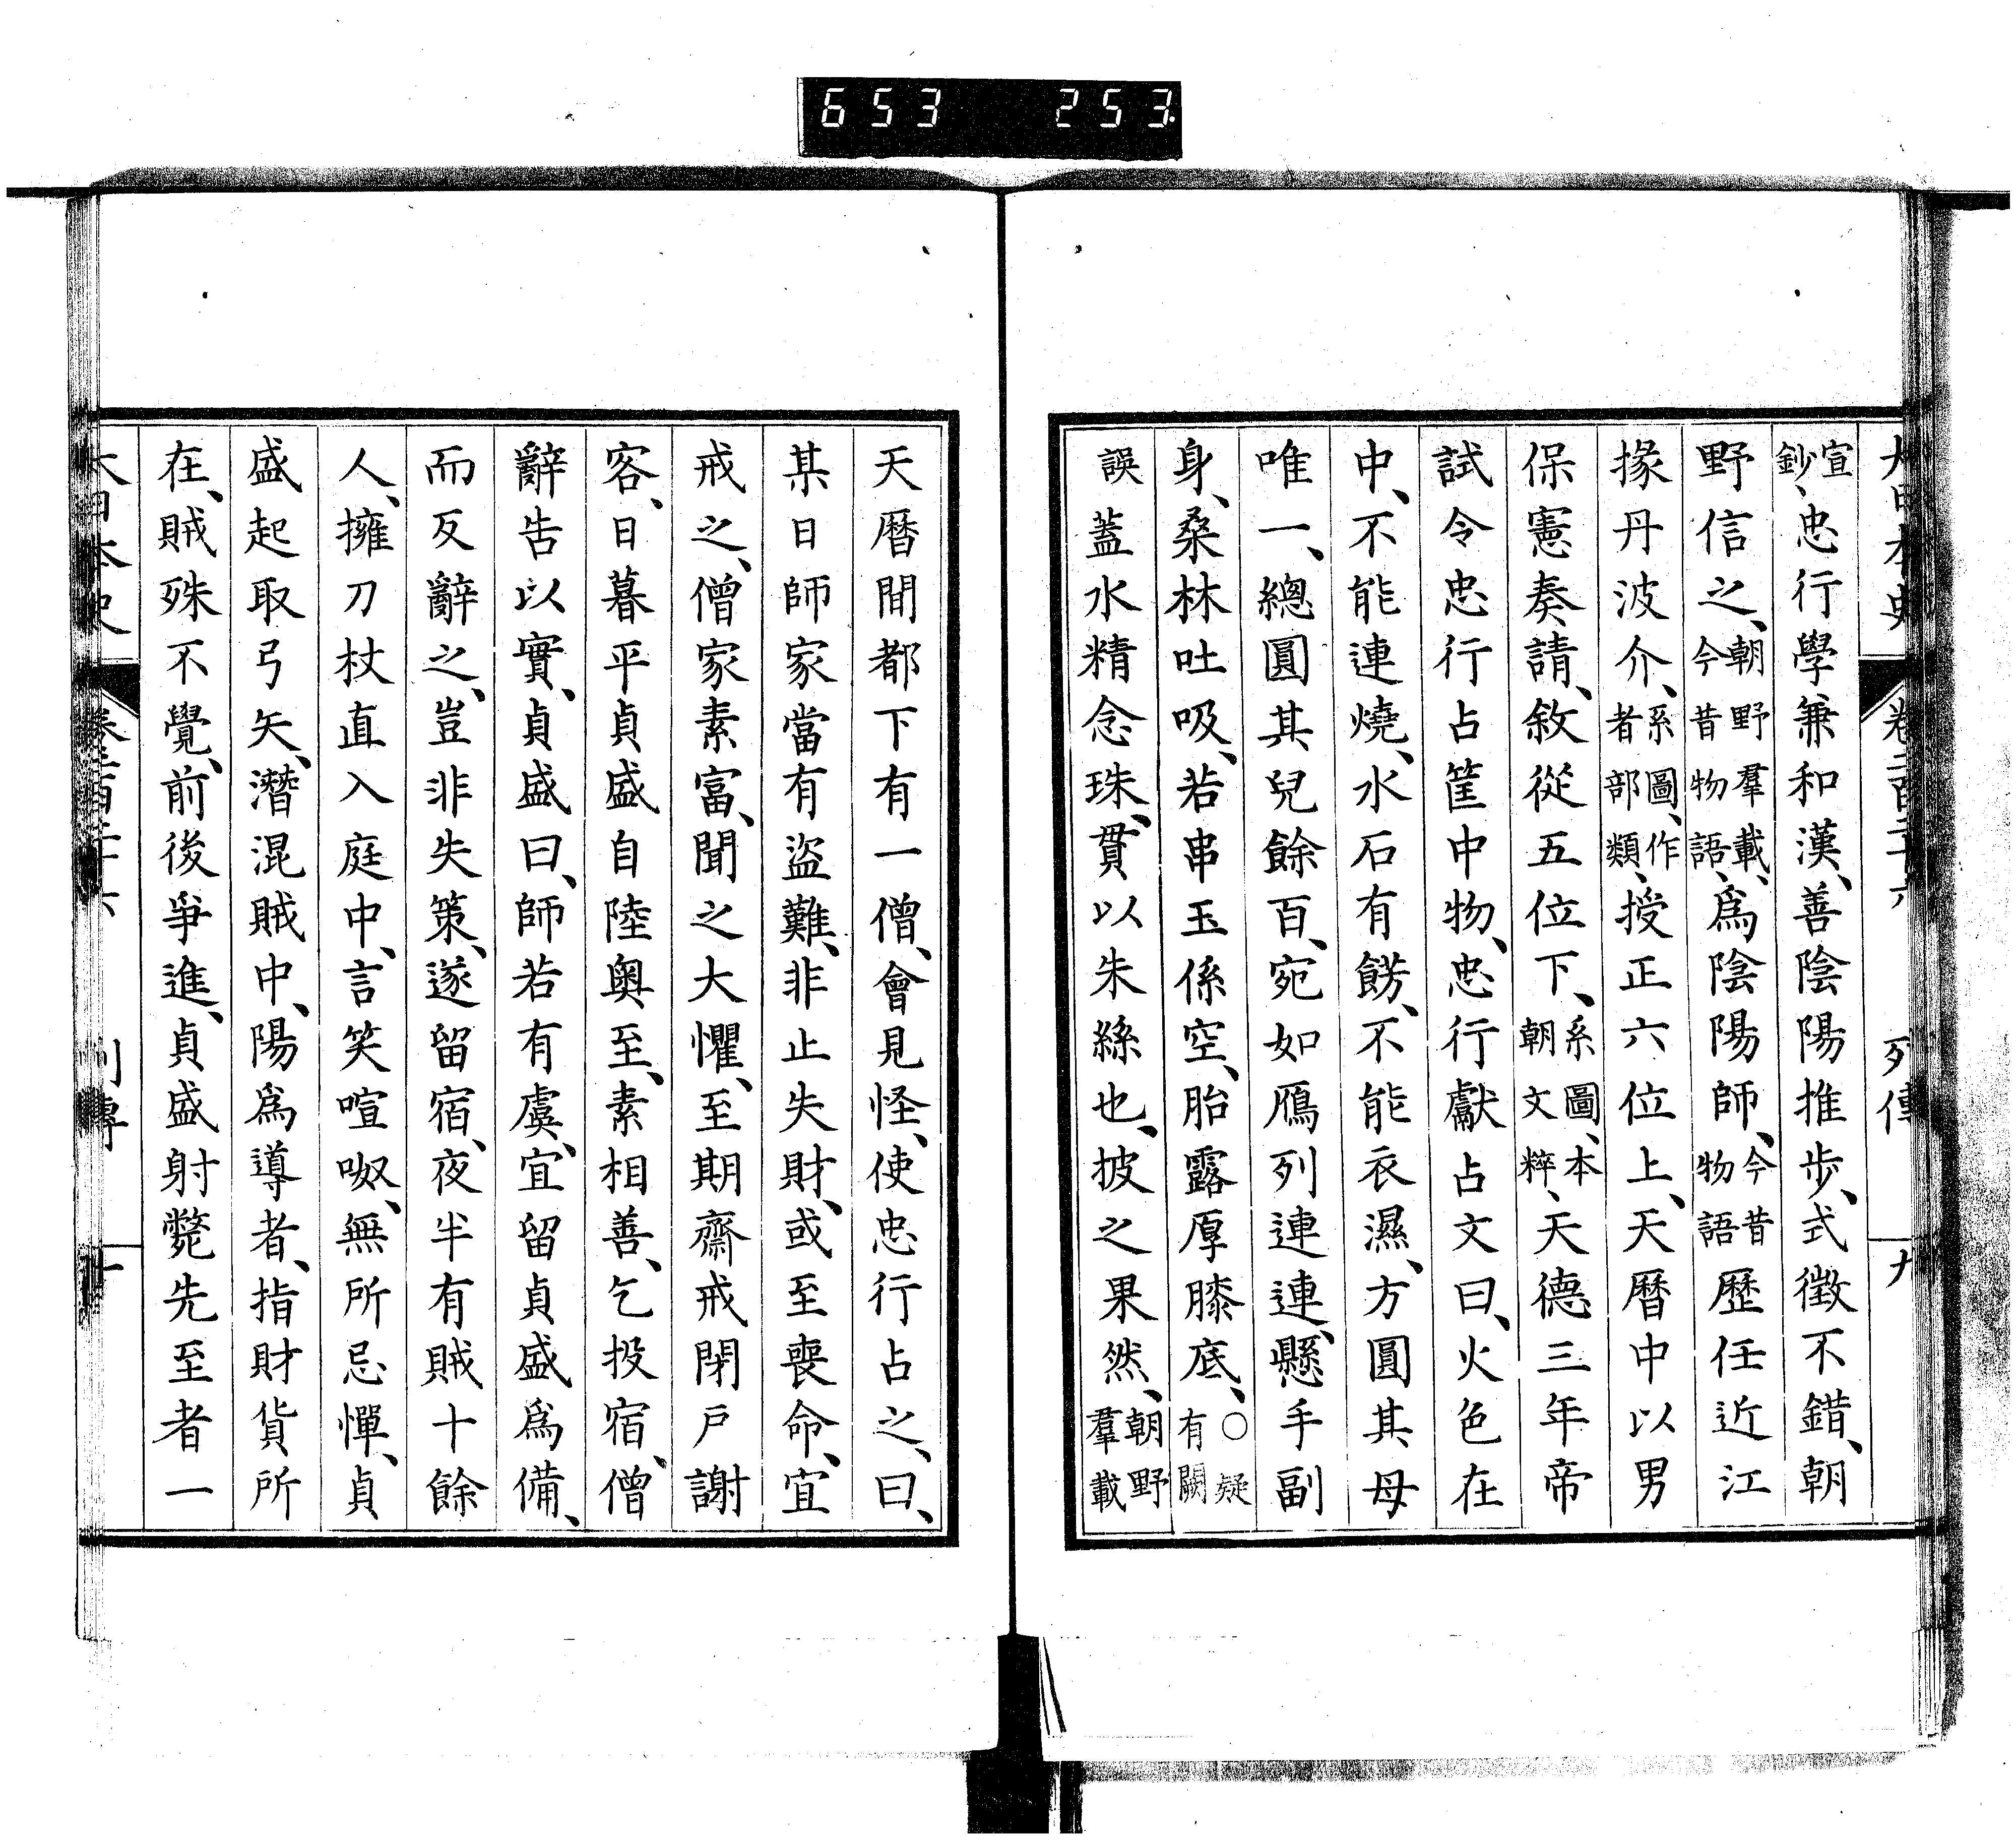 653 253
大日本史 卷二百二十六 列傳 九
宣鈔、忠行學兼和漢、善陰陽推步、式徵不錯、朝
野信之、朝野羣載、今昔物語、爲陰陽師、今昔物語歷任近江
掾丹波介、系圖、作者部類、授正六位上、天曆中以男
保憲奏請、敘從五位下、系圖、本朝文粹、天德三年帝
試令忠行占筐中物、忠行獻占文曰、火色在
中、不能連燒、水石有餝、不能衣濕、方圓其母
唯一、總圓其兒餘百、宛如鴈列連連、懸手副
身、桑林吐吸、若串玉係空、胎露厚膝底、○疑有闕
誤蓋水精念珠、貫以朱絲也、披之果然、朝野羣載
天曆間都下有一僧、會見怪、使忠行占之、曰、
某日師家當有盜難、非止失財、或至喪命、宜
戒之、僧家素富、聞之大懼、至期齋戒閉戸謝
客、日暮平貞盛自陸奧至、素相善、乞投宿、僧
辭告以實、貞盛曰、師若有虞、宜留貞盛爲備、
而反辭之、豈非失策、遂留宿、夜半有賊十餘
人、擁刀杖直入庭中、言笑喧呶、無所忌憚、貞
盛起取弓矢、潛混賊中、陽爲導者、指財貨所
在、賊殊不覺、前後爭進、貞盛射斃先至者一
大日本史 卷二百二十六 列傳 十